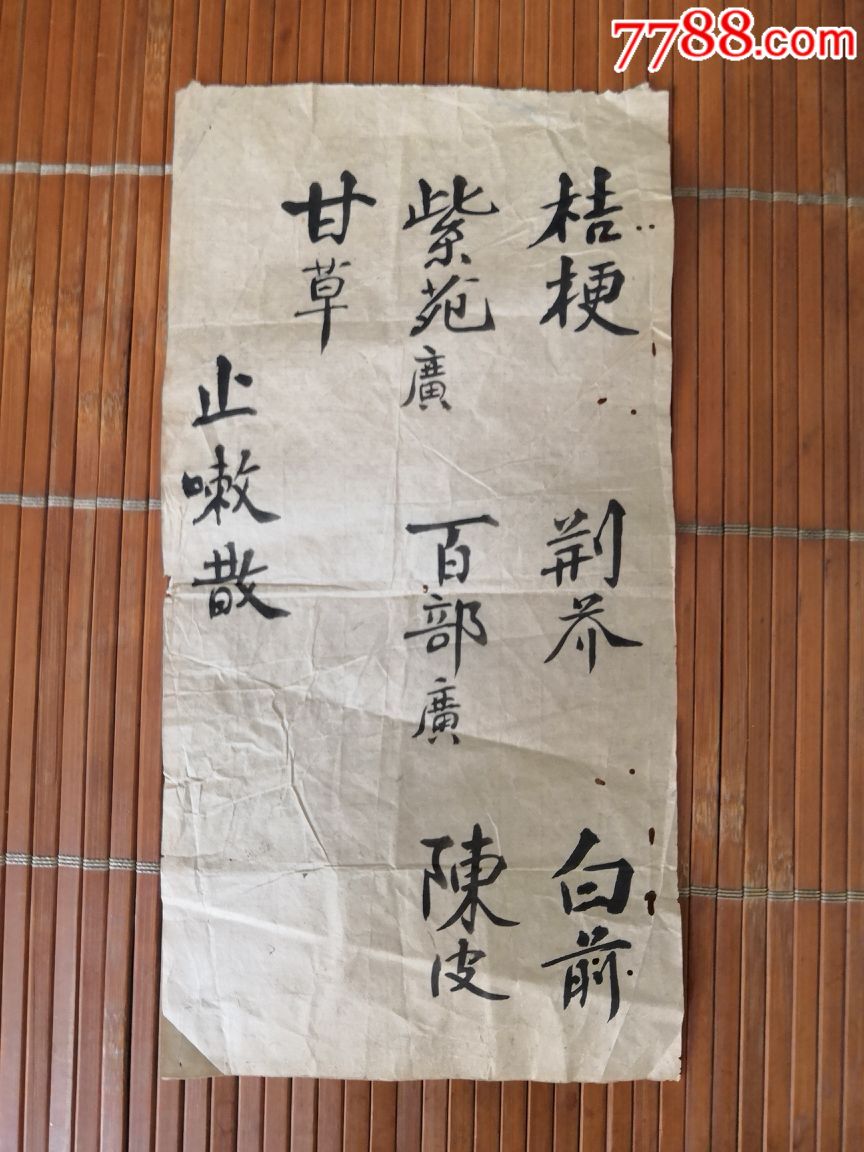 7788.com
桔梗 荆芥 白前
紫苑廣 百部廣 陳皮
甘草
止嗽散